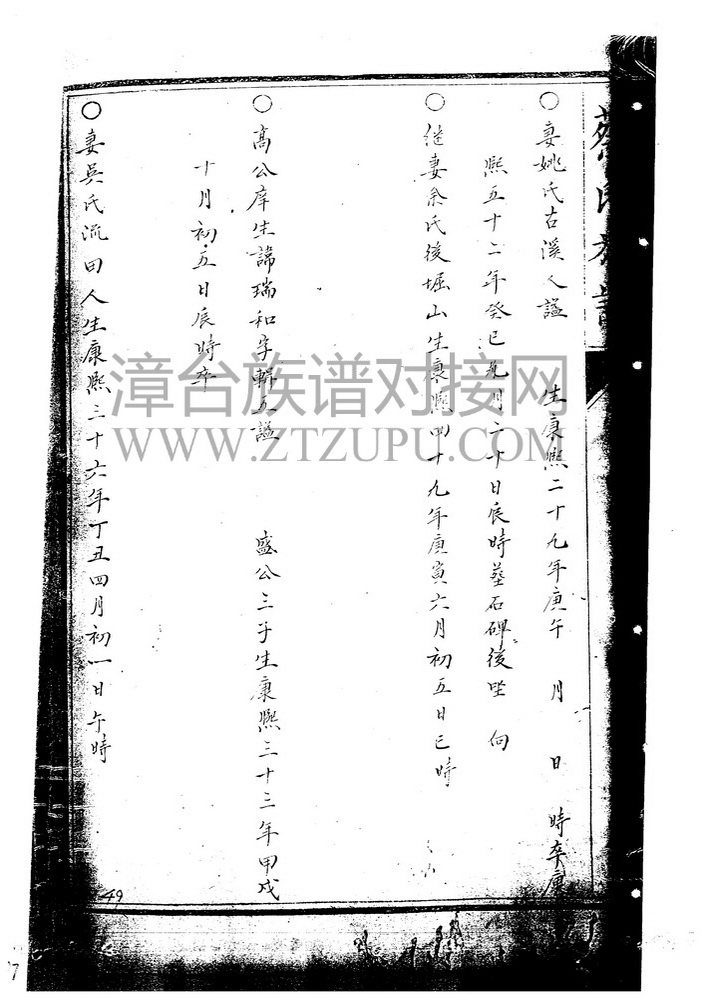 蔡氏族譜
○妻姚氏古溪人謚 生康熙二十九年庚午 月 日 時卒康
熙五十二年癸巳九月二十日辰時葬石碑後坐 向
○继妻余氏後堀山生康熙四十九年庚寅六月初五日巳時
○高公庠生諱瑞和字輯五謚 盛公三子生康熙三十三年甲戌
十月初五日辰時卒
○妻吳氏流田人生康熙三十六年丁丑四月初一日午時
49
7
漳台族谱对接网
WWW.ZTZUPU.COM